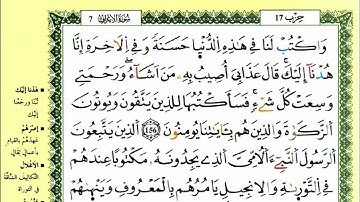 حزب 17
سورة الأعراف 7
وَاكْتُبْ لَنَا فِي هَٰذِهِ الدُّنْيَا حَسَنَةً وَفِي الْآخِرَةِ إِنَّا
هُدْنَا إِلَيْكَ قَالَ عَذَابِيَ أُصِيبُ بِهِ مَنْ أَشَاءُ وَرَحْمَتِي
وَسِعَتْ كُلَّ شَيْءٍ فَسَأَكْتُبُهَا لِلَّذِينَ يَتَّقُونَ وَيُوتُونَ
الزَّكَوٰةَ وَالَّذِينَ هُم بِـَٔايَٰتِنَا يُومِنُونَ 156 الَّذِينَ يَتَّبِعُونَ
الرَّسُولَ النَّبِيءَ الْأُمِّيَّ الَّذِي يَجِدُونَهُ مَكْتُوباً عِندَهُمْ
فِي التَّوْرَيٰةِ وَالْإِنجِيلِ يَامُرُهُم بِالْمَعْرُوفِ وَيَنْهَيٰهُمْ
هُدْنَا إِلَيْكَ
تُبْنا ورجعنا
إليك
إِصْرَهُمْ
عهدهم بالقيام
بأعمال ثقال
الأَغْلَالَ
التكاليف الشاقة
في التوراة